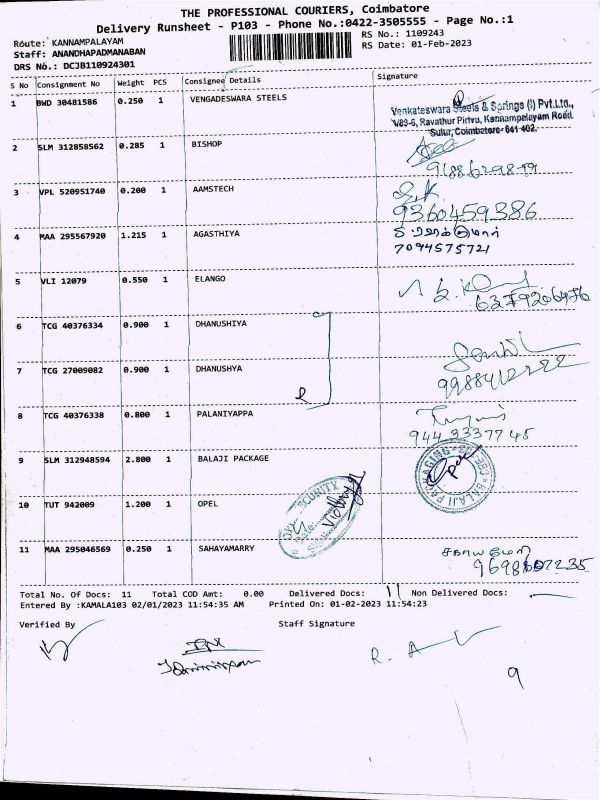 THE PROFESSIONAL COURIERS, Coimbatore
Delivery Runsheet - P103 - Phone No.:0422-3505555 - Page No.:1
Route: KANNAMPALAYAM
RS No.: 1109243
Staff: ANANDHAPADMANABAN
RS Date: 01-Feb-2023
DRS No.: DCJB110924301
S No Consignment No Weight PCS Consignee Details Signature
1 BWD 30481586 0.250 1 VENGADESWARA STEELS
Venkateswara Steels & Springs (I) Pvt.Ltd.,
Ravathur Pirivu, Kannampalayam Road,
Sulur, Coimbatore- 641 402.
2 SLM 312858562 0.285 1 BISHOP
3 VPL 520951740 0.200 1 AAMSTECH
9360459386
4 MAA 295567920 1.215 1 AGASTHIYA
7094575721
5 VLI 12079 0.550 1 ELANGO
6379206976
6 TCG 40376334 0.900 1 DHANUSHIYA
7 TCG 27009082 0.900 1 DHANUSHYA
8 TCG 40376338 0.800 1 PALANIYAPPA
944 3337745
9 SLM 312948594 2.800 1 BALAJI PACKAGE
BALAJI PACKAGING
10 TUT 942009 1.200 1 OPEL
SECURITY
11 MAA 295046569 0.250 1 SAHAYAMARRY
சகாய மேரி
Total No. Of Docs: 11 Total COD Amt: 0.00 Delivered Docs: 11 Non Delivered Docs:
Entered By :KAMALA103 02/01/2023 11:54:35 AM Printed On: 01-02-2023 11:54:23
Verified By Staff Signature
9